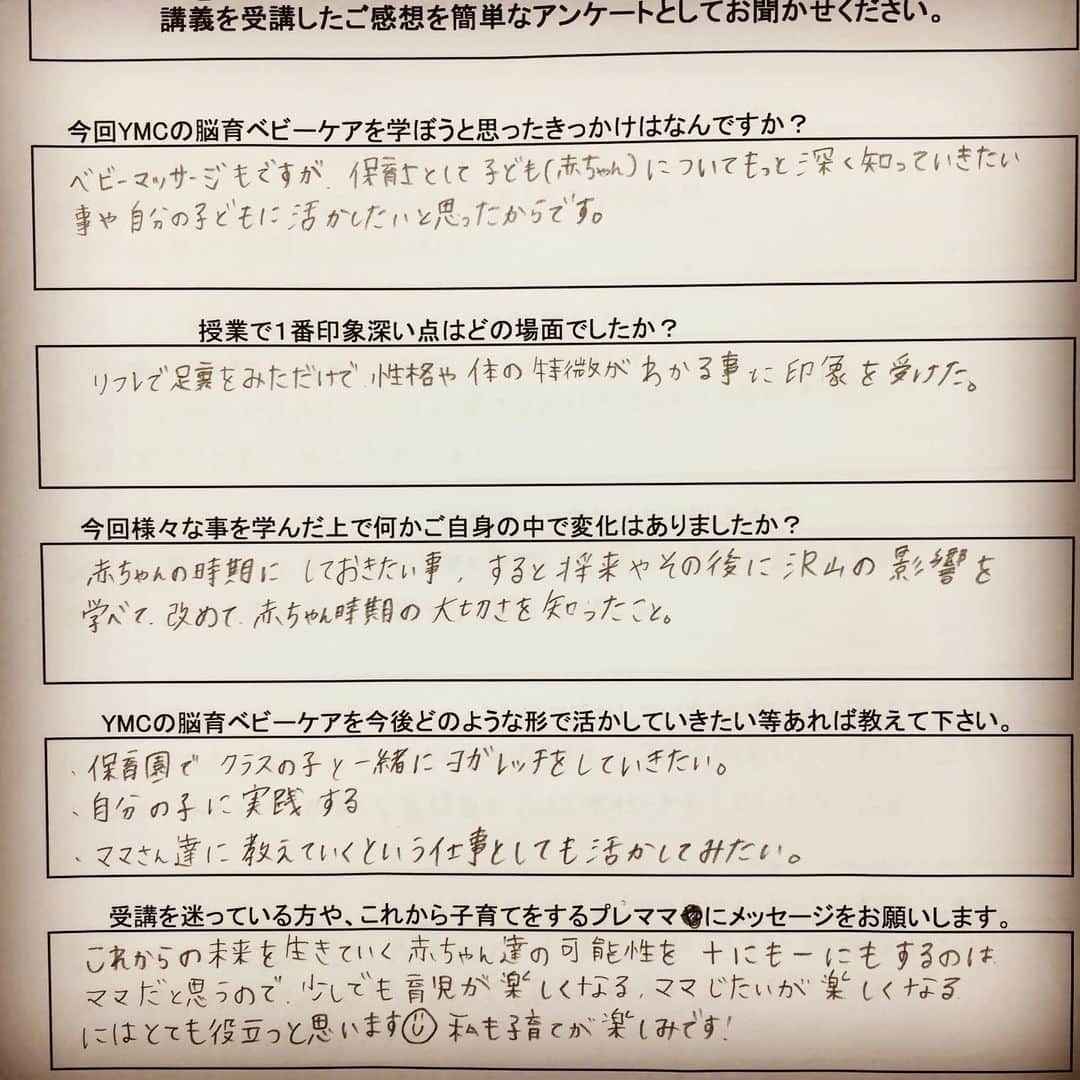 講義を受講したご感想を簡単なアンケートとしてお聞かせください。
今回YMCの脳育ベビーケアを学ぼうと思ったきっかけはなんですか？
ベビーマッサージもですが、保育士として子ども(赤ちゃん)についてもっと深く知っていきたい
事や自分の子どもに活かしたいと思ったからです。
授業で１番印象深い点はどの場面でしたか？
リフレで足裏をみただけで、性格や体の特徴がわかる事に印象を受けた。
今回様々な事を学んだ上で何かご自身の中で変化はありましたか？
赤ちゃんの時期にしておきたい事、すると将来やその後に沢山の影響を
学べて、改めて、赤ちゃん時期の大切さを知ったこと。
YMCの脳育ベビーケアを今後どのような形で活かしていきたい等あれば教えて下さい。
・保育園でクラスの子と一緒にヨガレッチをしていきたい。
・自分の子に実践する
・ママさん達に教えていくという仕事としても活かしてみたい。
受講を迷っている方や、これから子育てをするプレママにメッセージをお願いします。
これからの未来を生きていく赤ちゃん達の可能性を＋にも－にもするのは、
ママだと思うので、少しでも育児が楽しくなる、ママじたいが楽しくなる
にはとても役立つと思います☺私も子育てが楽しみです！